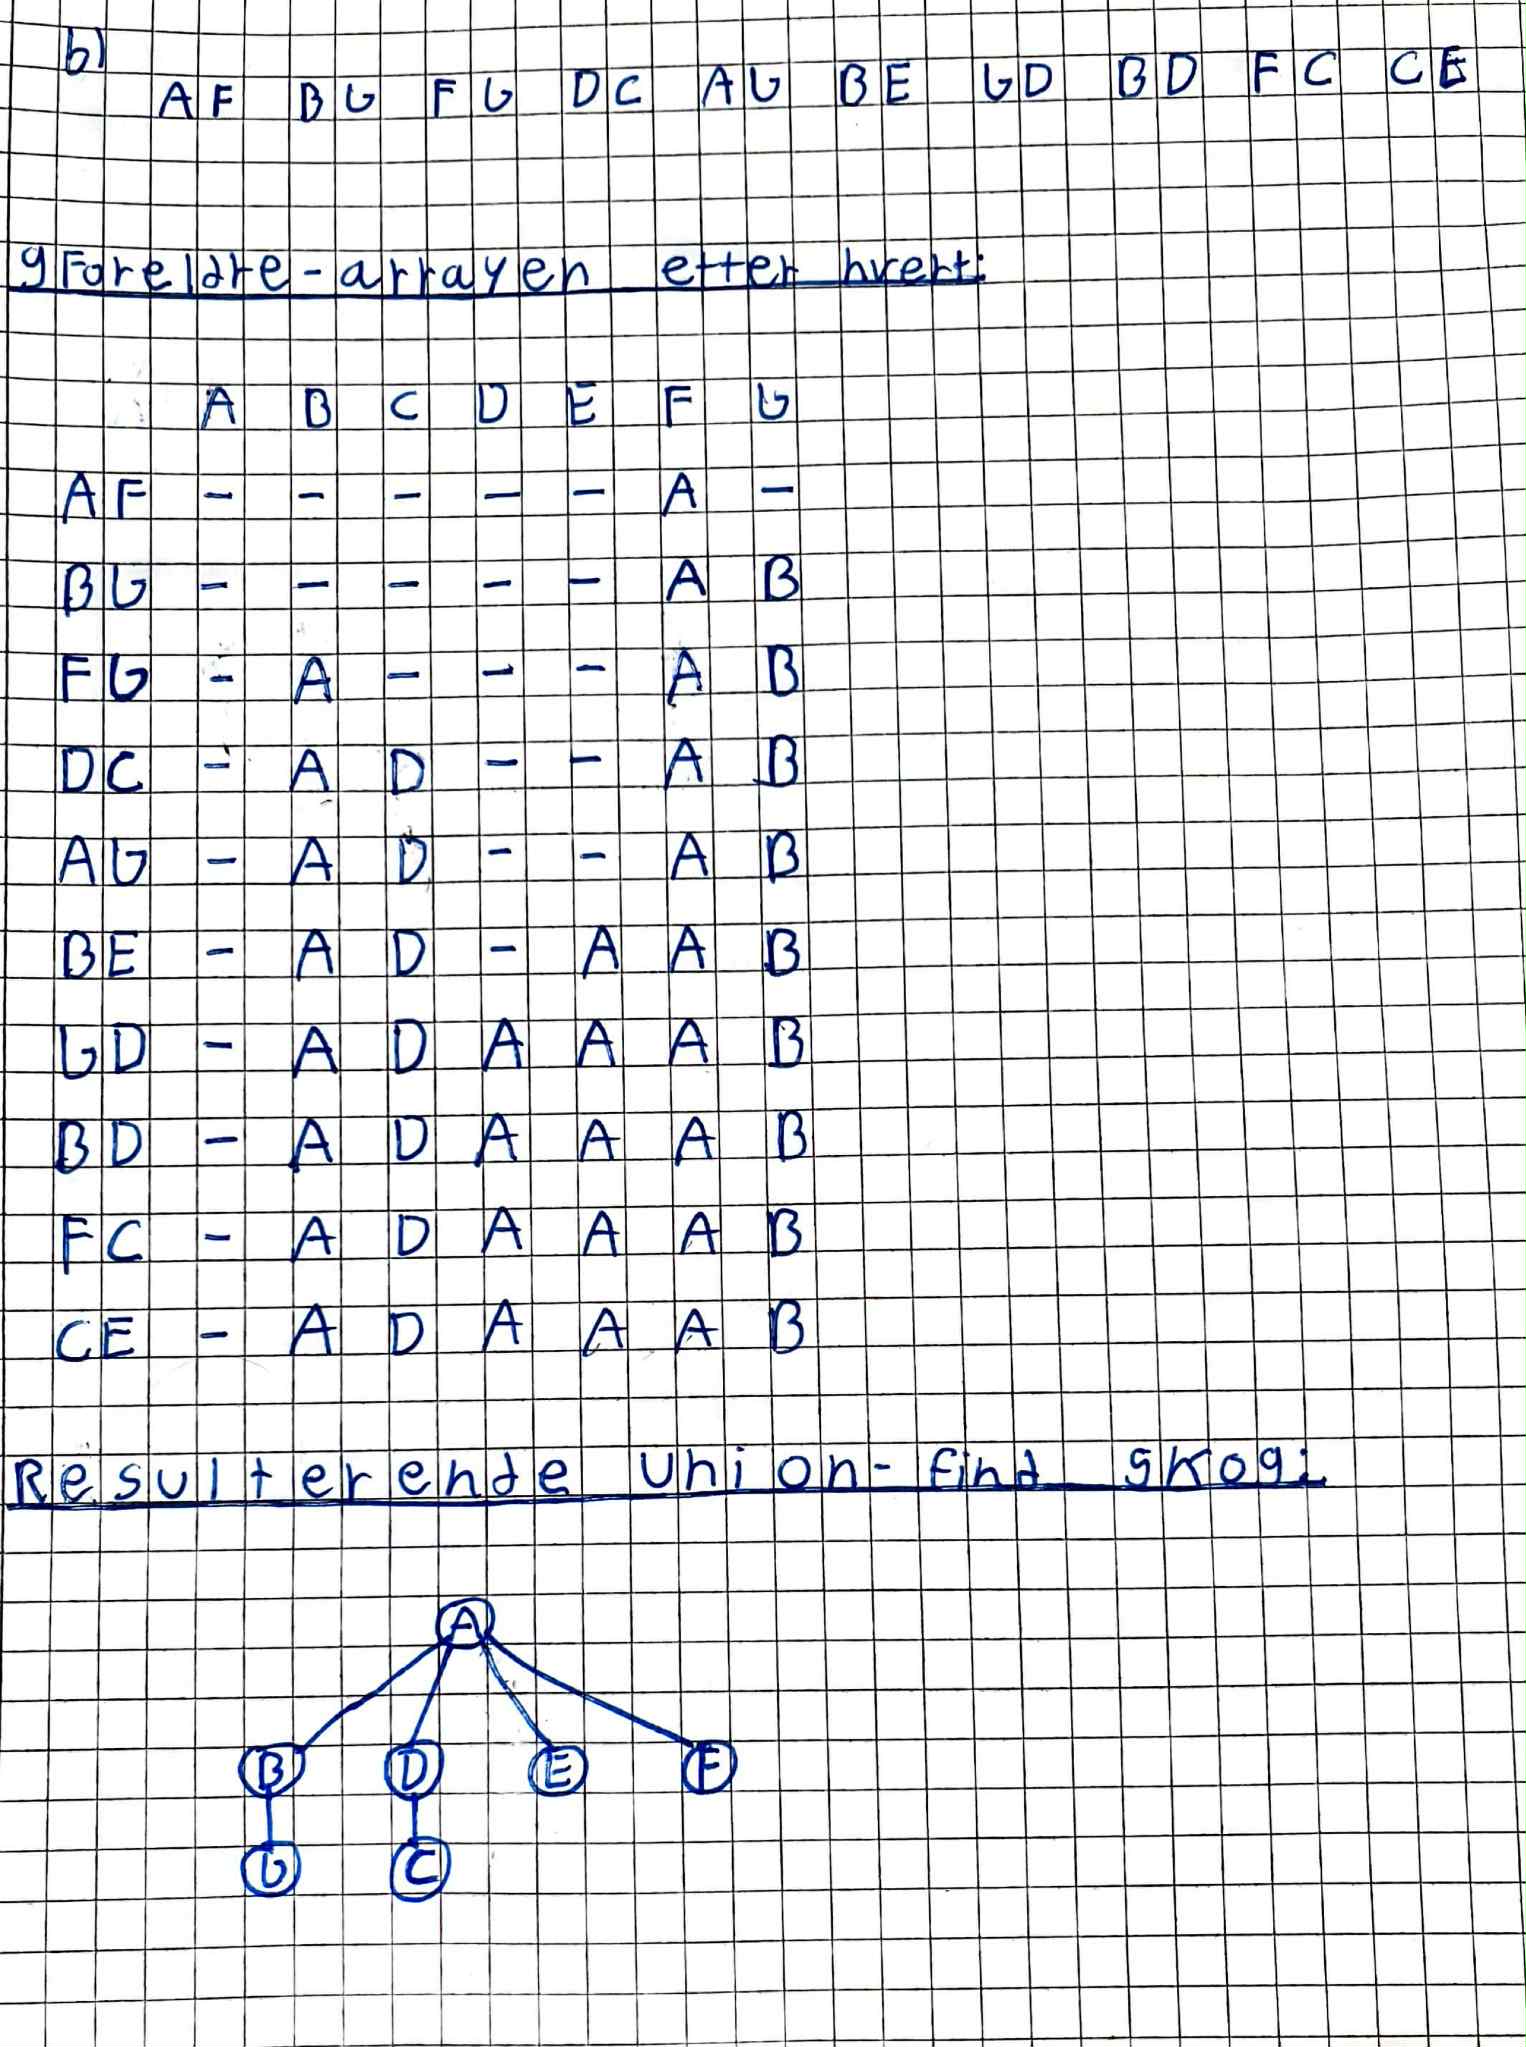 b)
AF BG FG DC AG BE GD BD FC CE
gForeldre-arrayen etter hvert:
A B C D E F G
AF - - - - - A -
BG - - - - - A B
FG - A - - - A B
DC - A D - - A B
AG - A D - - A B
BE - A D - A A B
GD - A D A A A B
BD - A D A A A B
FC - A D A A A B
CE - A D A A A B
Resulterende union-find skog:
A
B D E F
G C